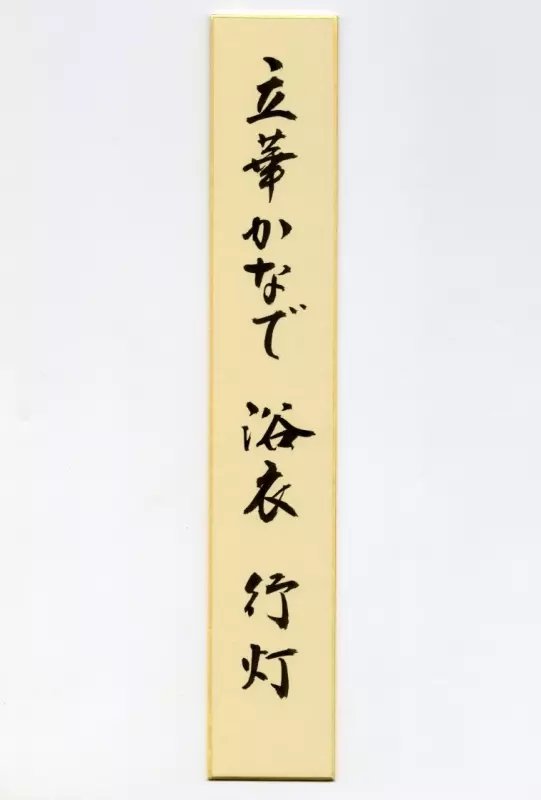 立華かなで 浴衣 行灯